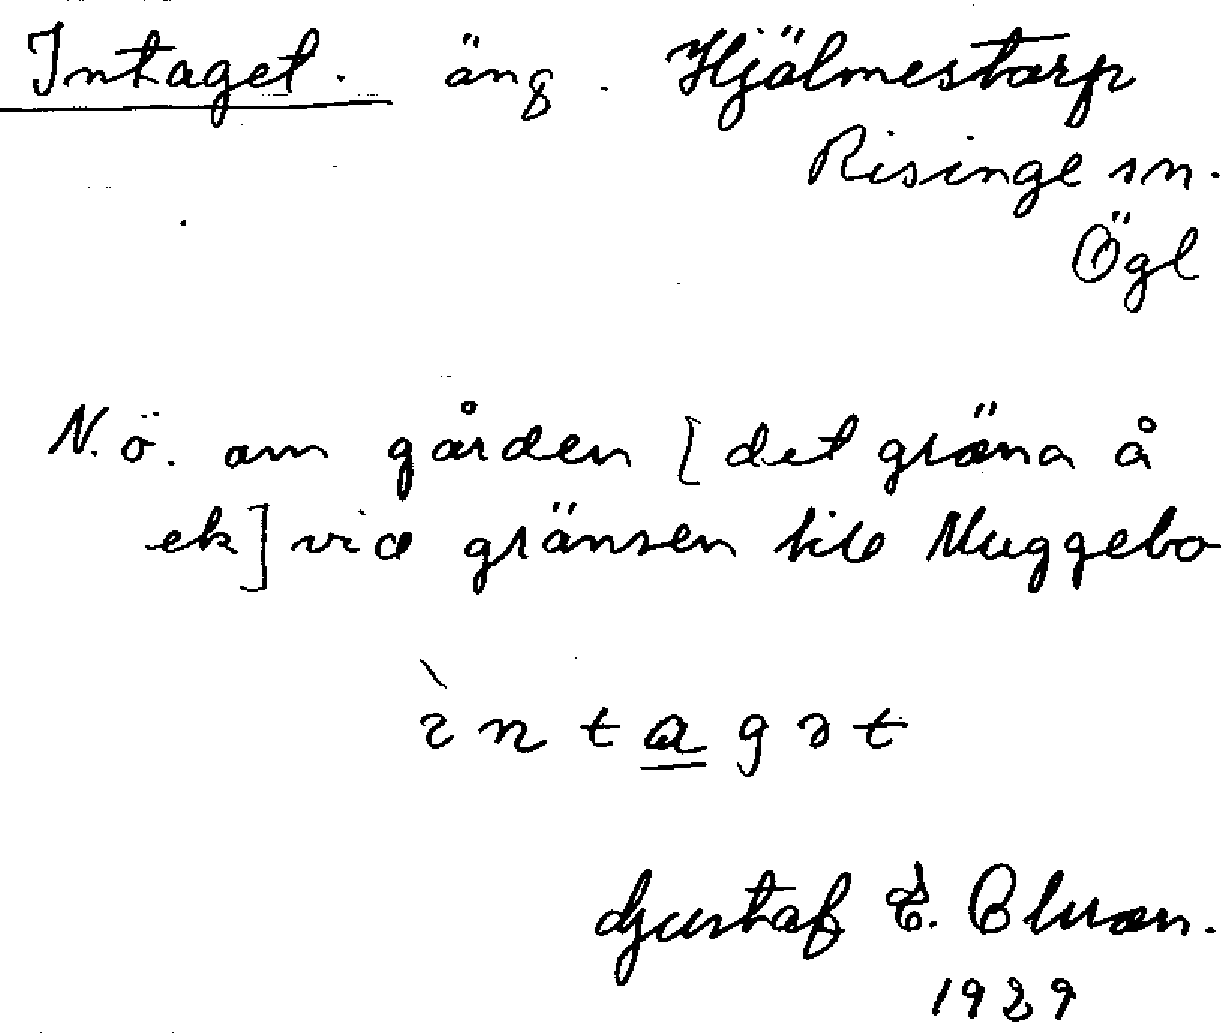 Intaget. äng. Hjälmestorp
Risinge sn.
Ögl
N.ö. om gården [det gröna å
ek] vid gränsen till Muggebo
ìntagət
Gustaf E.
1929